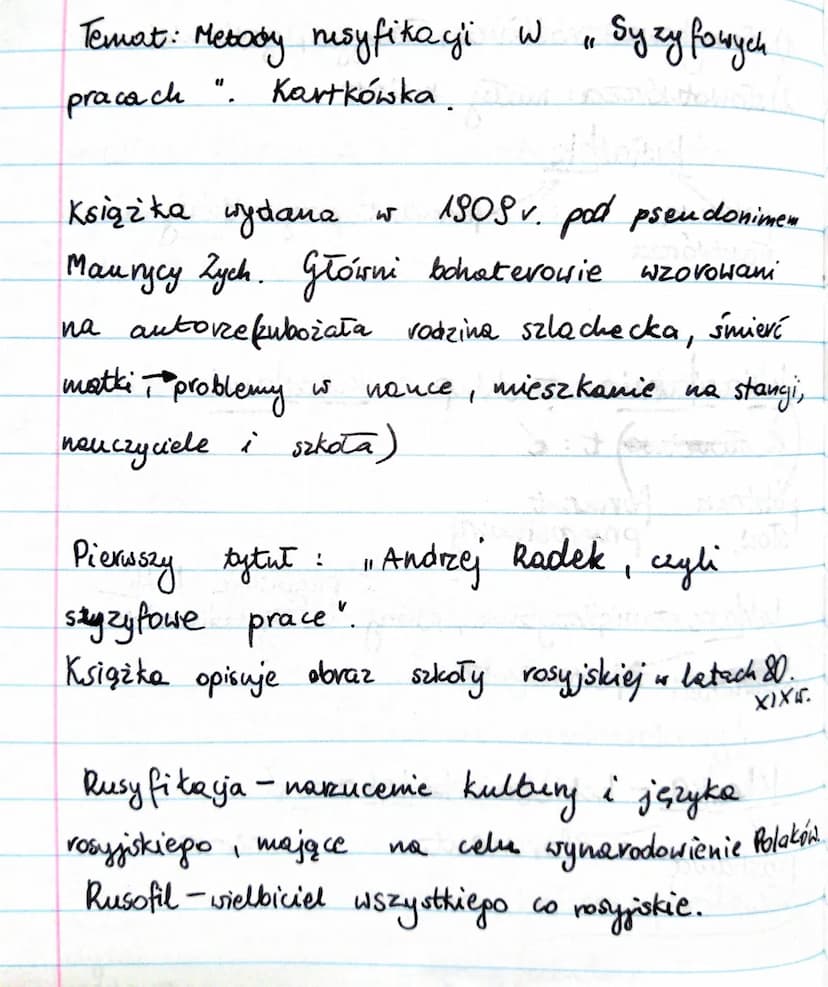 Temat: Metody rusyfikacji w „Syzyfowych
pracach". Kartkówska.
Książka wydana w 1909 r. pod pseudonimem
Maurycy Zych. Główni bohaterowie wzorowani
na autorze (zubożała rodzina szlachecka, śmierć
matki, → problemy w nauce, mieszkanie na stangi,
nauczyciele i szkoła)
Pierwszy tytuł: „Andrzej Radek, czyli
syzyfowe prace".
Książka opisuje obraz szkoły rosyjskiej w latach 80.
XIX w.
Rusyfikacja – narzucenie kultury i języka
rosyjskiego, mające na celu wynarodowienie Polaków.
Rusofil – wielbiciel wszystkiego co rosyjskie.